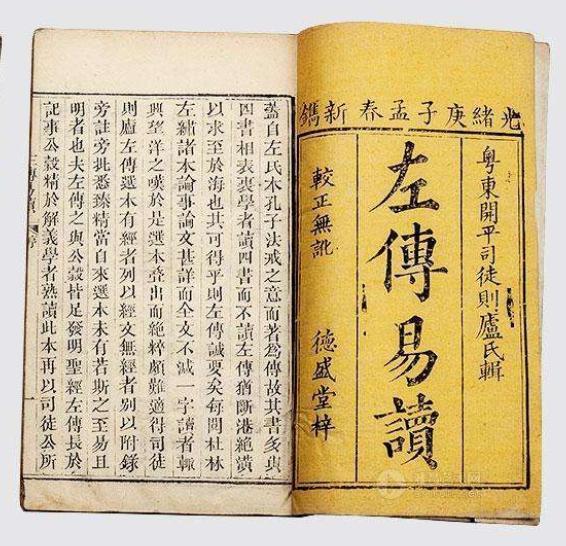 光緒庚子孟春新鐫
粵東開平司徒則廬氏輯
左傳易讀
較正無訛 德盛堂梓
蓋自左氏本孔子法戒之意而著為傳故其書多與
四書相表裏學者讀四書而不讀左傳猶斷港絕潢
以求至於海也其可得乎則左傳誠要矣每閱杜林
左繡諸本論事論文甚詳而全文不減一字讀者輒
興望洋之嘆於是選本叠出而純粹頗難適得司徒
則廬左傳選本有經者列以經文無經者別以附錄
旁註旁批悉臻精當自來選本未有若斯之至易且
明者也夫左傳之與公穀皆足發明聖經左傳長於
記事公穀精於解義學者熟讀此本再以司徒公所